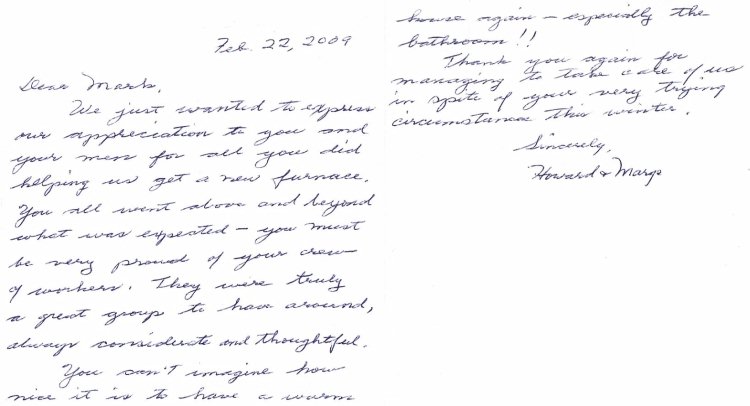 Feb. 22, 2009
Dear Mark,
We just wanted to express
our appreciation to you and
your men for all you did
helping us get a new furnace.
You all went above and beyond
what was expected – you must
be very proud of your crew
of workers. They were truly
a great group to have around,
always considerate and thoughtful.
You can't imagine how
nice it is to have a warm
house again – especially the
bathroom!!
Thank you again for
managing to take care of us
in spite of your very trying
circumstances this winter.
Sincerely,
Howard & Marge